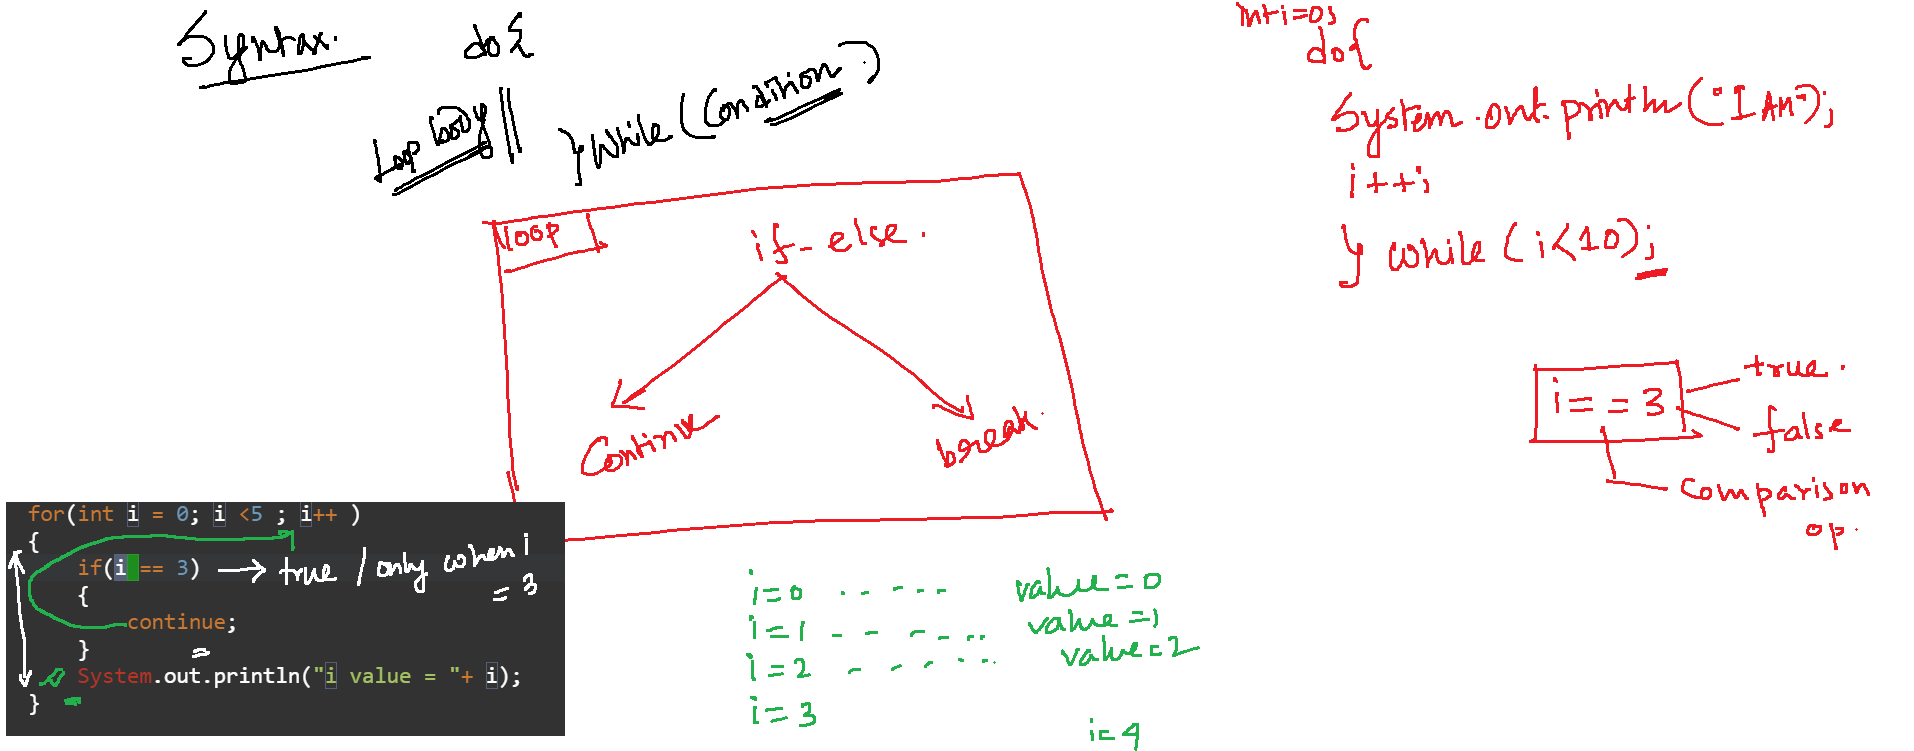 Syntax.
do{
Loop body
} while (Condition)
int i=0;
do{
System.out.println("I AM");
i++;
} while (i<10);
loop
if-else.
Continue
break.
i==3
true.
false
Comparison
op.
for(int i = 0; i <5 ; i++ )
{
if(i == 3) → true / only when i
= 3
{
continue;
}
System.out.println("i value = "+ i);
}
i=0 ...... value=0
i=1 ...... value=1
i=2 ...... value=2
i=3
i=4